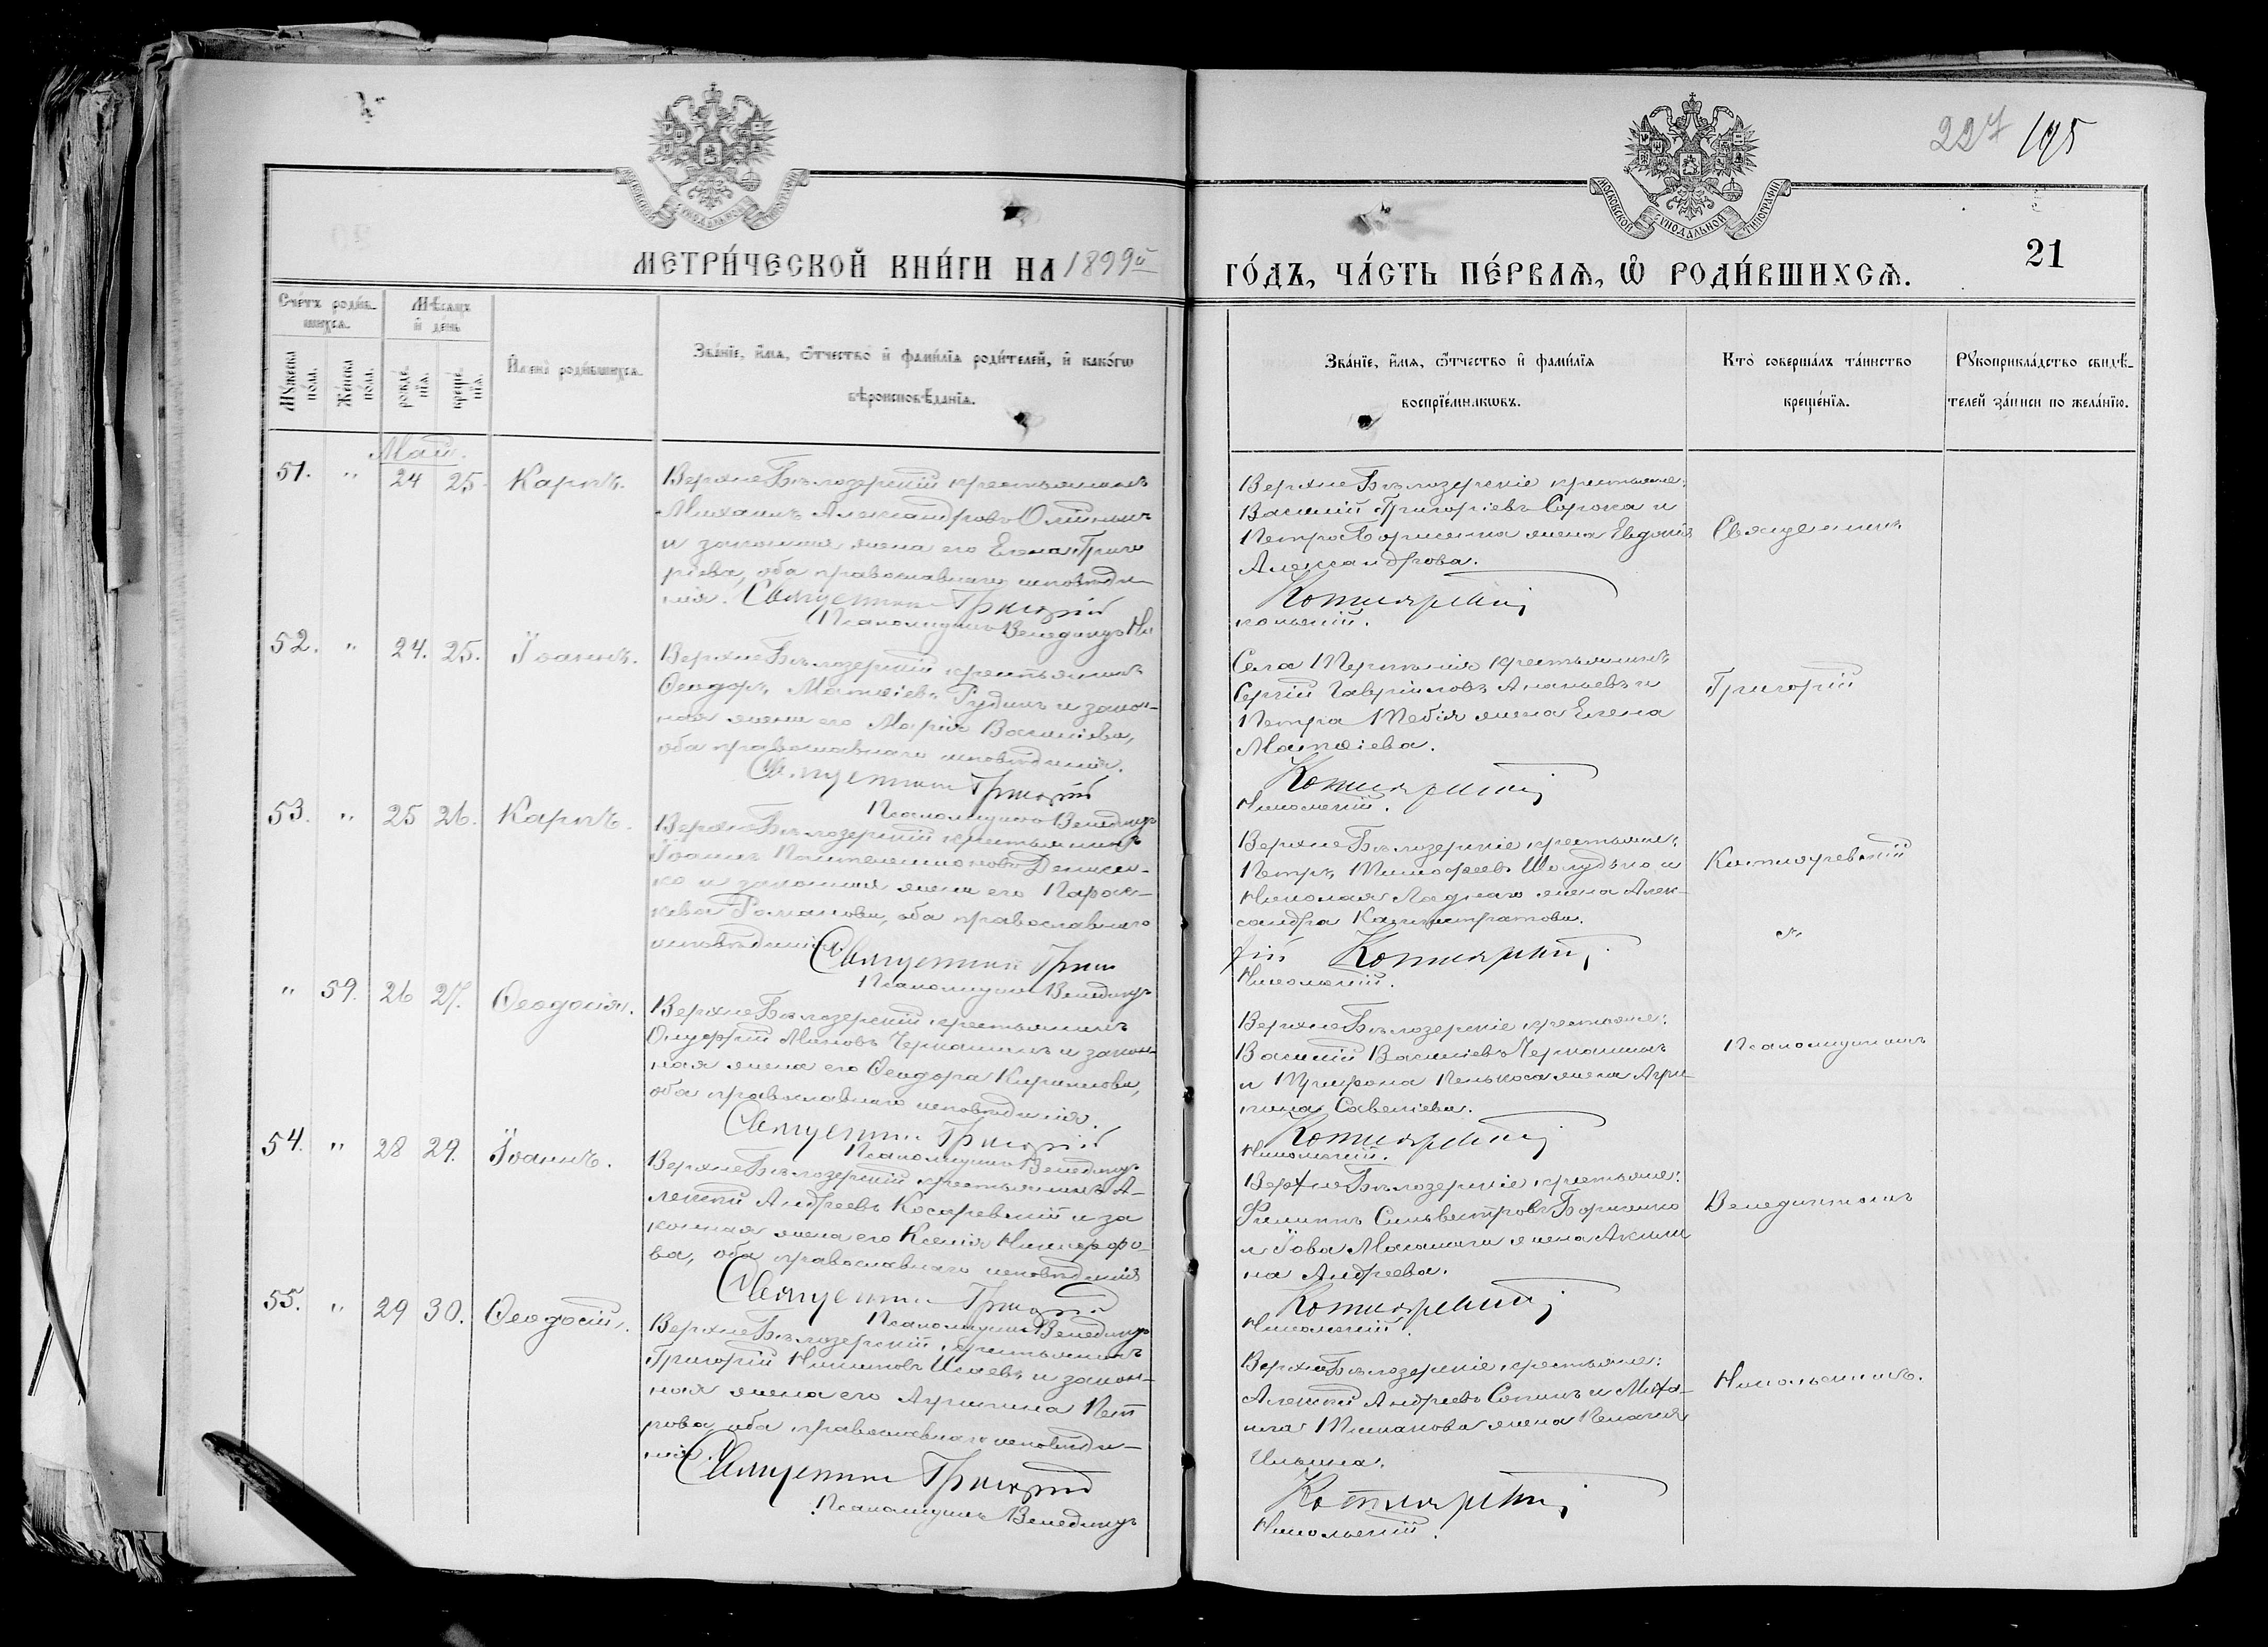 227 195
МОСКОВСКОЙ СѴНОДАЛЬНОЙ ТИПОГРАФІИ
МЕТРИ́ЧЕСКОЙ КНИ́ГИ НА 1899й
ГО́ДЪ, ЧА́СТЬ ПЕ́РВАѦ, Ѡ҆ РОДИ́ВШИХСѦ.
21
Сче́тъ роди́в-
шихсѧ.
Мѣ́сѧцъ
и҆ де́нь
Мꙋ́жеска
по́ла.
Же́нска
по́ла.
рожде́-
нїѧ.
креще́-
нїѧ.
И҆мена̀ роди́вшихсѧ.
Зва́нїе, и҆́мѧ, ѻ҆́тчество и҆ фами́лїѧ роди́телей, и҆ како́гѡ
вѣроисповѣ́данїѧ.
Зва́нїе, и҆́мѧ, ѻ҆́тчество и҆ фами́лїѧ
воспрїе́мникѡвъ.
Кто̀ соверша́лъ та́инство
креще́нїѧ.
Рꙋкоприкла́дство свидѣ́-
телей за́писи по жела́нїю.
Май.
51. " 24 25. Карпъ.
Верхне Бѣлозерскій крестьянинъ
Михаилъ Александровъ Олійникъ
и законная жена его Елена Григо
ріева, оба православнаго исповѣда-
нія. Священникъ Григорій
Псаломщикъ Венедиктъ Ни
Верхне Бѣлозерскіе крестьяне:
Василій Григоріевъ Сорока и
Александрова.
Котляревскій
кольскій.
Священникъ
52. " 24. 25. Іоаннъ.
Верхне Бѣлозерскій крестьянинъ
Ѳеодоръ Матѳіевъ Рудикъ и закон-
ная жена его Марія Василіева,
оба православнаго исповѣданія.
Священникъ Григорій
Псаломщикъ Венедиктъ
Сергій Гавріиловъ Ананьевъ и
Петра жена Елена
Матѳіева.
Котляревскій
Никольскій.
Григорій
53. " 25 26. Карпъ.
Верхне Бѣлозерскій крестьянинъ
Іоаннъ Пантелеимоновъ Денисен-
ко и законная жена его Параск-
кева Романова, оба православнаго
исповѣданія. Священникъ Григо
Псаломщикъ Венедиктъ
Верхне Бѣлозерскіе крестьяне:
Петръ Тимофеевъ Шолудько и
Николая Ладнаго жена Алек-
сандра Каллистратова.
рій Котляревскій
Никольскій.
Котляревскій
съ
" 59. 26 27. Ѳеодосія.
Верхне Бѣлозерскій крестьянинъ
Онуфрій Черкашинъ и закон-
ная жена его Ѳеодора Кириллова,
оба православнаго исповѣданія.
Священникъ Григорій
Псаломщикъ Венедиктъ
Верхне Бѣлозерскіе крестьяне:
Василій Василіевъ Черкашинъ
и Трифона жена Агри-
пина Савеліева.
Котляревскій
Никольскій.
Псаломщикомъ
54. " 28 29. Іоаннъ.
Верхне Бѣлозерскій крестьянинъ А-
лексій Андреевъ Косаревскій и за
конная жена его Ксенія Никифоро-
ва, оба православнаго исповѣданія
Священникъ Григорій
Псаломщикъ Венедиктъ
Верхне Бѣлозерскіе крестьяне:
Филиппъ Сильвестровъ Борженко
и Іова жена Акили
на Андреева.
Котляревскій
Никольскій.
Венедиктомъ
55. " 29 30. Ѳеодосій.
Верхне Бѣлозерскій крестьянинъ
Григорій Исаевъ и закон-
ная жена его Агрипина Пет
рова, оба православнаго исповѣда-
нія. Священникъ Григорій
Псаломщикъ Венедиктъ
Верхне Бѣлозерскіе крестьяне:
Алексій Андреевъ и Миха-
ила жена Пелагія
Ильина.
Котляревскій
Никольскій.
Никольскимъ.